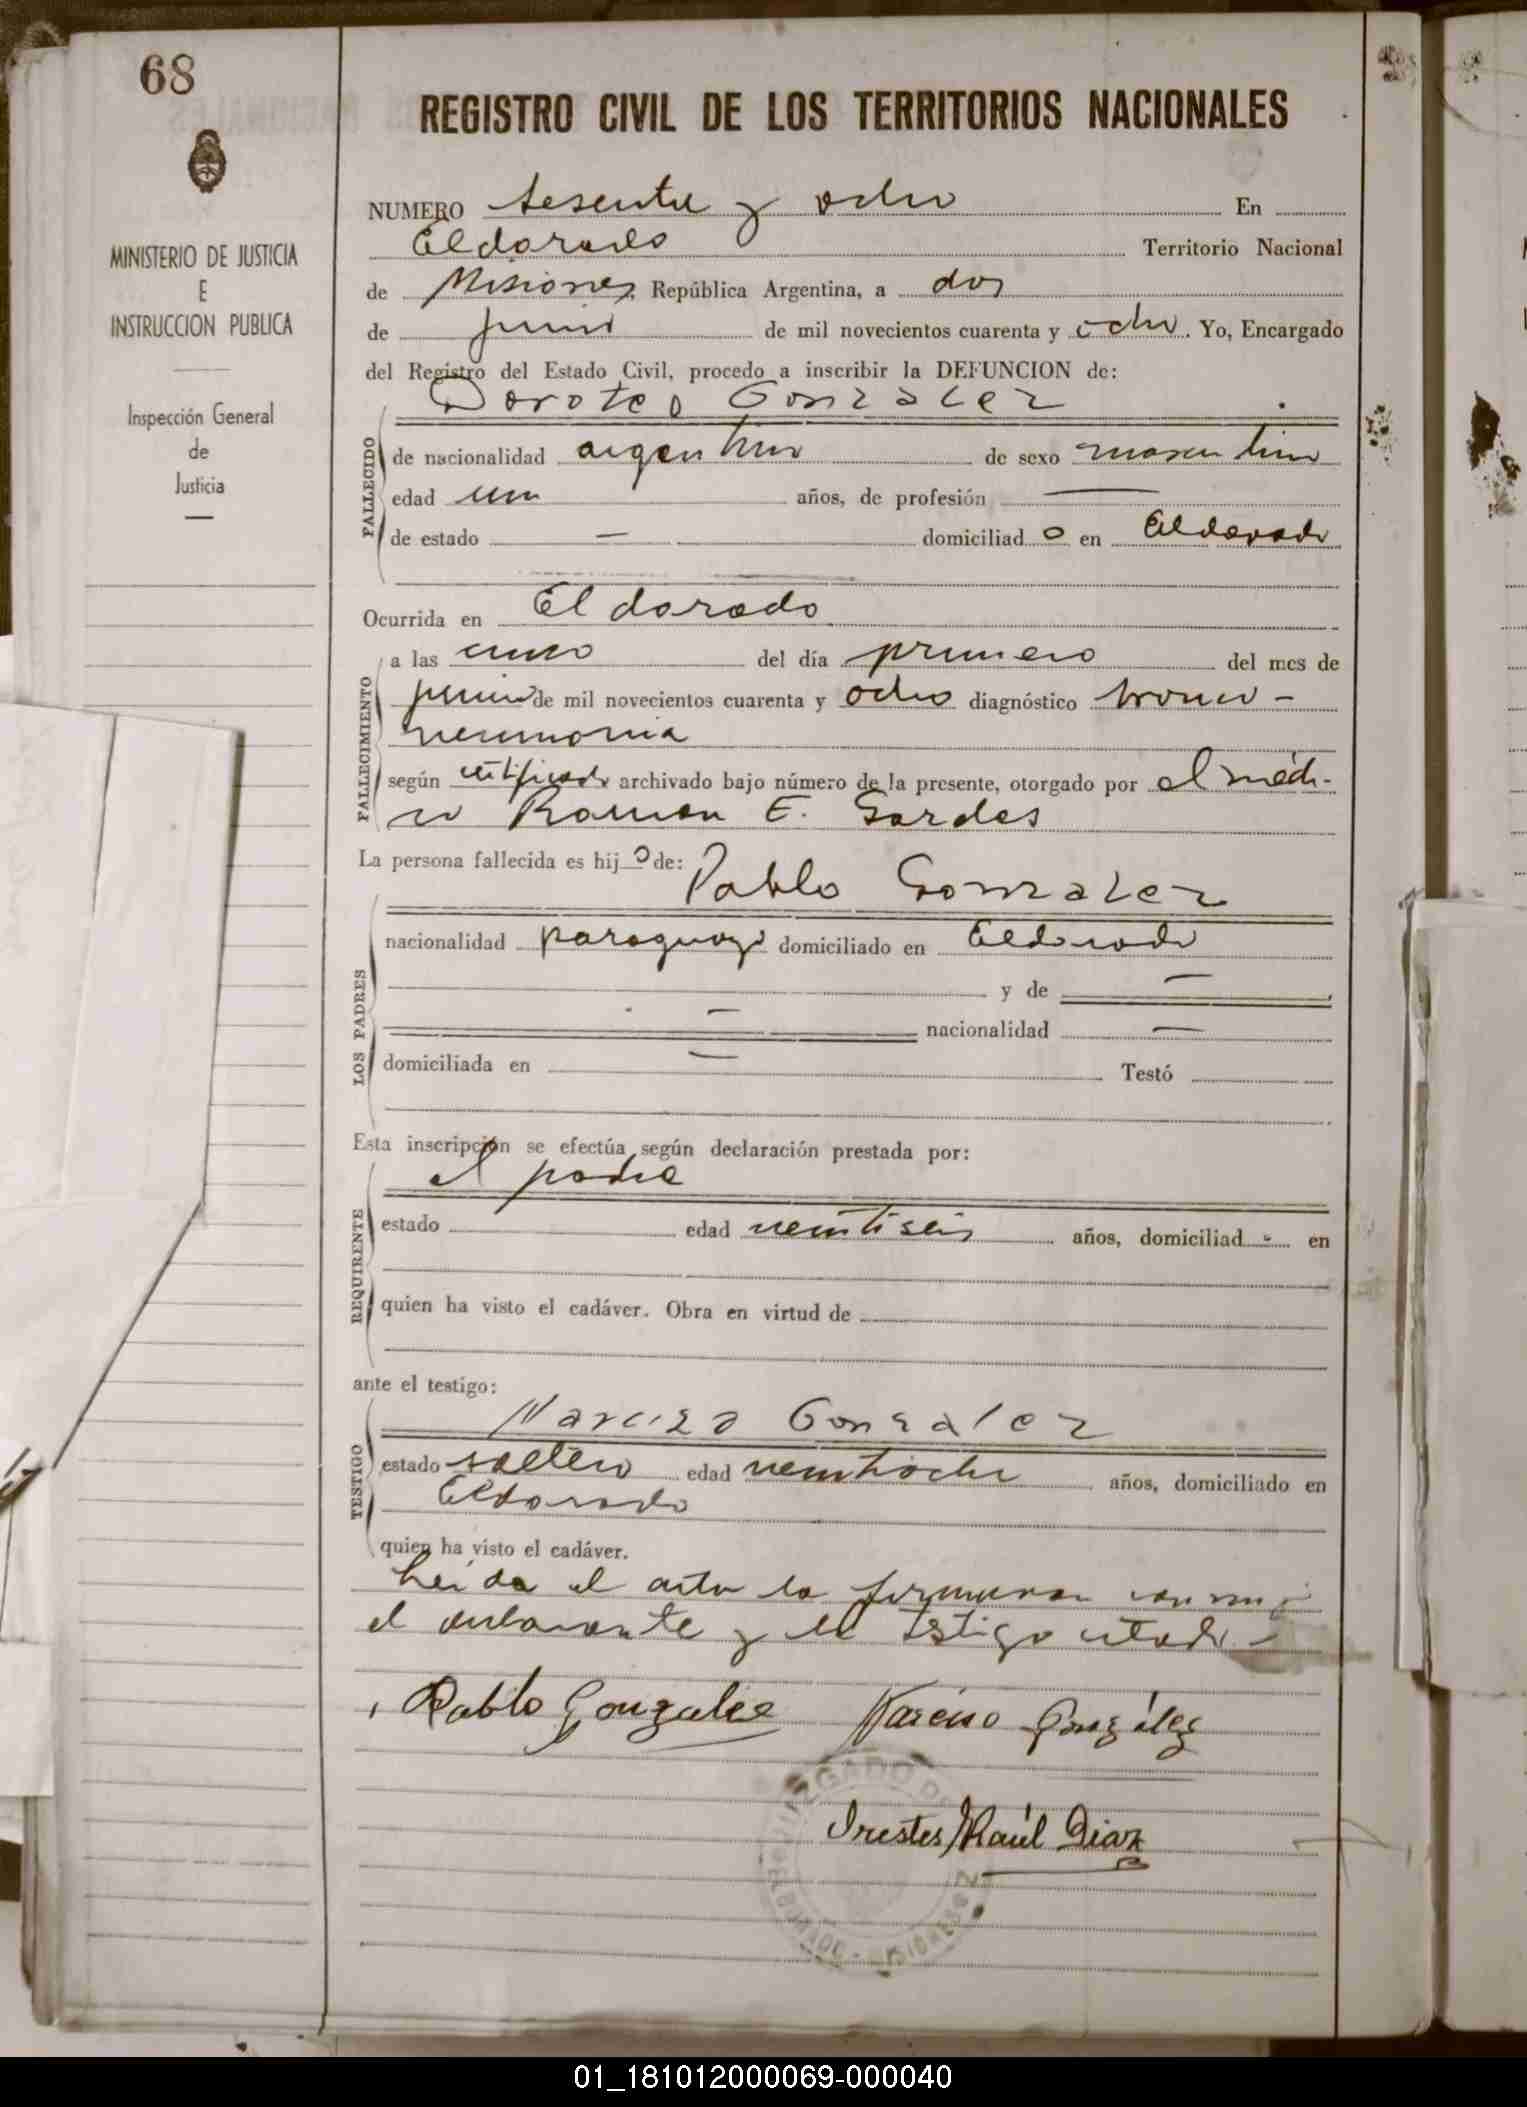 68
REGISTRO CIVIL DE LOS TERRITORIOS NACIONALES
MINISTERIO DE JUSTICIA
E
INSTRUCCION PUBLICA
Inspección General
de
Justicia
NUMERO sesenta y ocho En
Eldorado Territorio Nacional
de Misiones, República Argentina, a dos
de junio de mil novecientos cuarenta y ocho. Yo, Encargado
del Registro del Estado Civil, procedo a inscribir la DEFUNCION de:
Doroteo Gonzalez
FALLECIDO
de nacionalidad argentino de sexo masculino
edad un años, de profesión —
de estado — domiciliad o en Eldorado
Ocurrida en Eldorado
FALLECIMIENTO
a las cinco del día primero del mes de
junio de mil novecientos cuarenta y ocho diagnóstico bronco-
neumonia
según certificado archivado bajo número de la presente, otorgado por el médi-
co Ramon E. Gardes
La persona fallecida es hij o de:
Pablo Gonzalez
LOS PADRES
nacionalidad paraguayo domiciliado en Eldorado
y de —
— nacionalidad —
domiciliada en — Testó
Esta inscripción se efectúa según declaración prestada por:
el padre
REQUIRENTE
estado edad veintiseis años, domiciliad o en
quien ha visto el cadáver. Obra en virtud de
ante el testigo:
Narciso Gonzalez
TESTIGO
estado soltero edad veintiocho años, domiciliado en
Eldorado
quien ha visto el cadáver.
Leída el acta la firmaron conmigo
el declarante y el testigo citado.-
Pablo Gonzalez Narciso González
JUZGADO DE
Orestes Raúl Diaz
ELDORADO - MISIONES
01_181012000069-000040